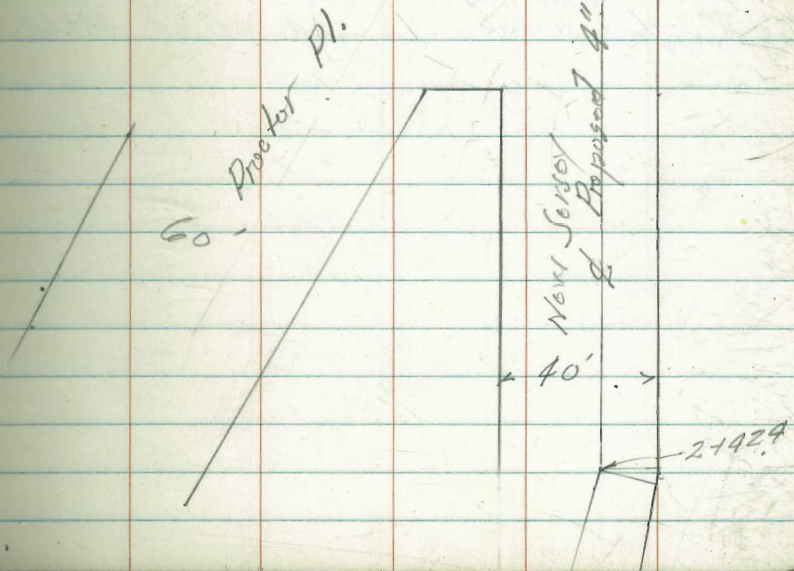 Proctor Pl.
60'
New Jersey
₵ Proposed 4"
40'
2+424